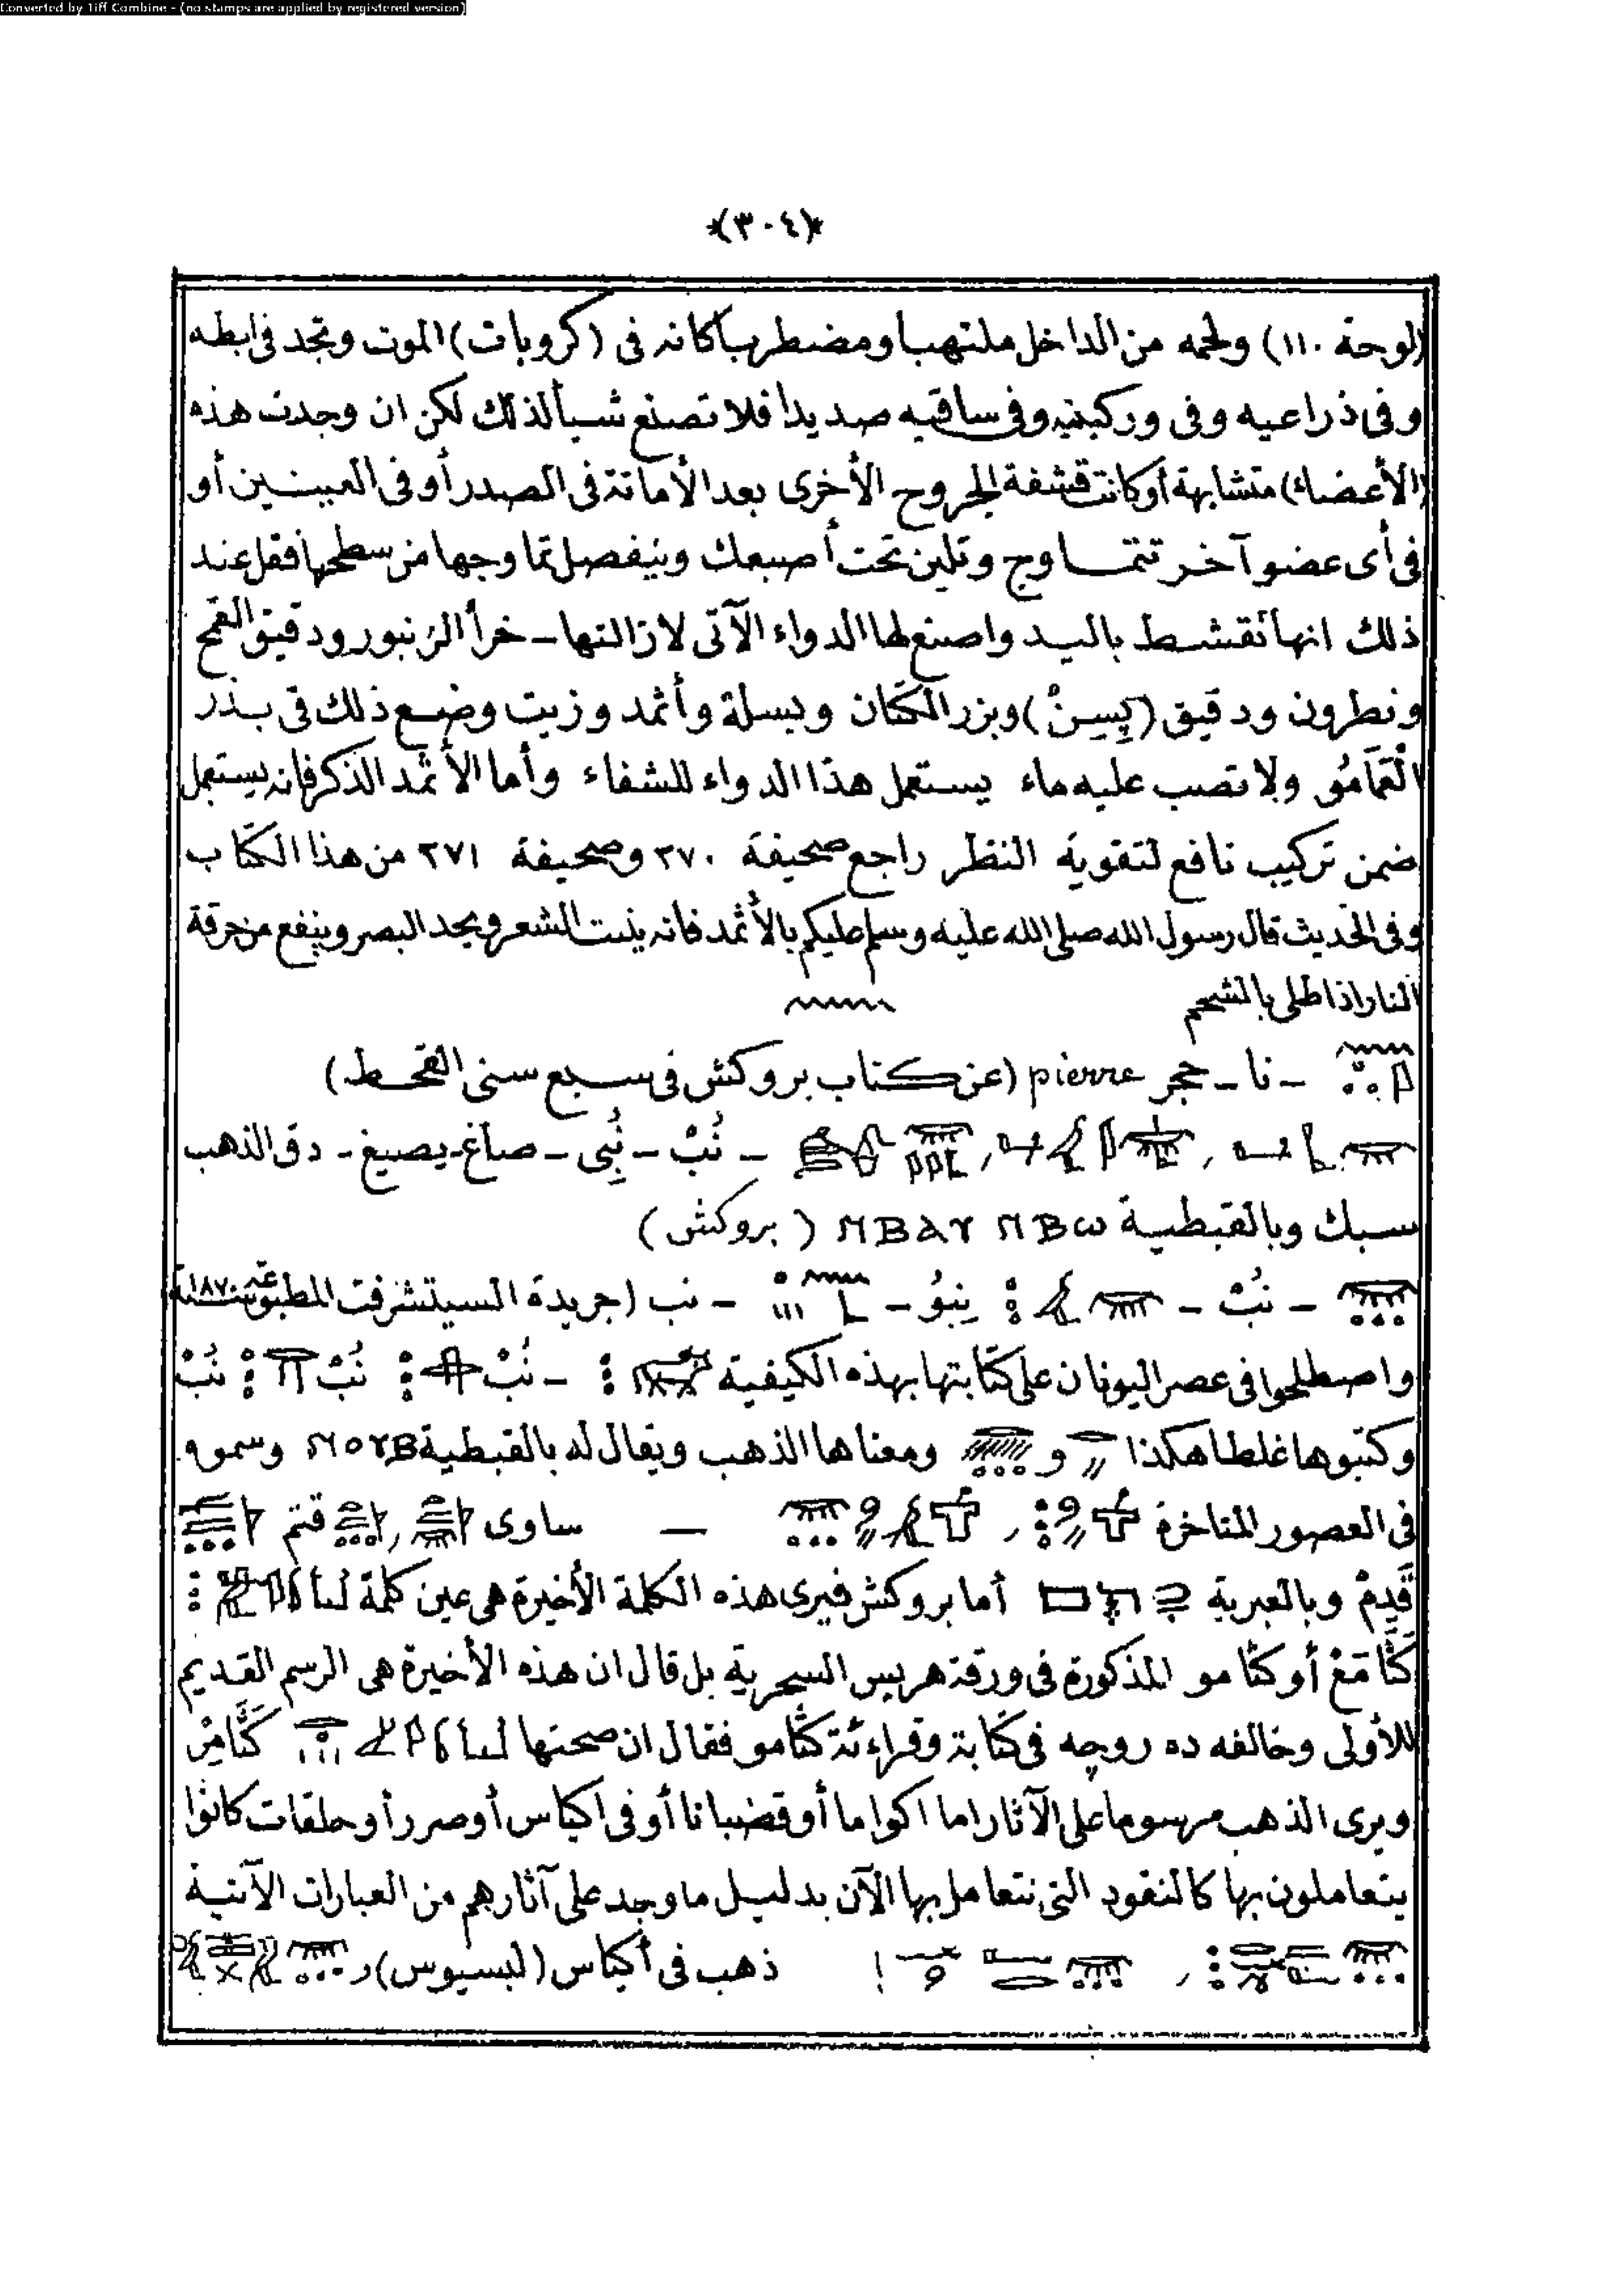 Converted by Tiff Combine - (no stamps are applied by registered version)
*(٣٠٤)*
(لوحة ١١٠) ولحمه من الداخل ملتهبا ومضطربا كانه فى (كروبات) الموت وتجد فى ابطه
وفى ذراعيه وفى وركيه وفى ساقيه صديدا فلا تصنع شيأ لذلك لكن ان وجدت هذه
(الأعضاء) متشابهة أو كانت قشفة الجروح الأخرى بعد الأماتة فى الصدر أو فى العينين أو
فى أى عضو آخر تتماوج وتلين تحت أصبعك وينفصل تماوجها من سطحها فقل عند
ذلك انها تقشط باليد واصنع لها الدواء الآتى لازالتها ـ خرأ الزنبور ودقيق القمح
ونطرون ودقيق (پِسِنْ) وبزر الكتان وبسلة وأثمد وزيت وضع ذلك فى بذر
ولا تصب عليه ماء يستعمل هذا الدواء للشفاء وأما الأثمد الذكر فانه يستعمل
ضمن تركيب نافع لتقوية النظر راجع صحيفة ٢٧٠ وصحيفة ٢٧١ من هذا الكتاب
وفى الحديث قال رسول الله صلى الله عليه وسلم عليكم بالأثمد فانه ينبت الشعر ويحد البصر وينفع من حرقة
النار اذا طلى بالشحم
ـ نا ـ حجر pierre (عن كتاب بروكش فى سبع سنى القحط)
ـ نُبْ ـ نُبِى ـ صاغ ـ يصيغ ـ دق الذهب
سبك وبالقبطية ⲛⲃⲁⲩ ⲛⲃⲱ (بروكش)
ـ نُبْ ـ نِبُو ـ ـ نب (جريدة السيتشرفت المطبوعة
واصطلحوا فى عصر اليونان على كتابتها بهذه الكيفية ـ نُبْ نُبْ نُبْ
وكتبوها غلطا هكذا و ومعناها الذهب ويقال له بالقبطية ⲛⲟⲩⲃ وسموه
فى العصور المتاخرة ـ ساوى قتم
قَدِمْ وبالعبرية أما بروكش فيرى هذه الكلمة الأخيرة هى عين كلمة
كَتَّامَعْ أو كتامو المذكورة فى ورقة هريس السحرية بل قال ان هذه الأخيرة هى الرسم القديم
للأولى وخالفه ده روچه فى كتابة وقراءة كتامو فقال ان صحتها
ويرى الذهب مرسوما على الآثار اما اكواما أو قضبانا أو فى اكياس أو صرر أو حلقات كانوا
يتعاملون بها كالنقود التى نتعامل بها الآن بدليل ما وجد على آثارهم من العبارات الآتية
ذهب فى أكياس (لبسيوس) ر